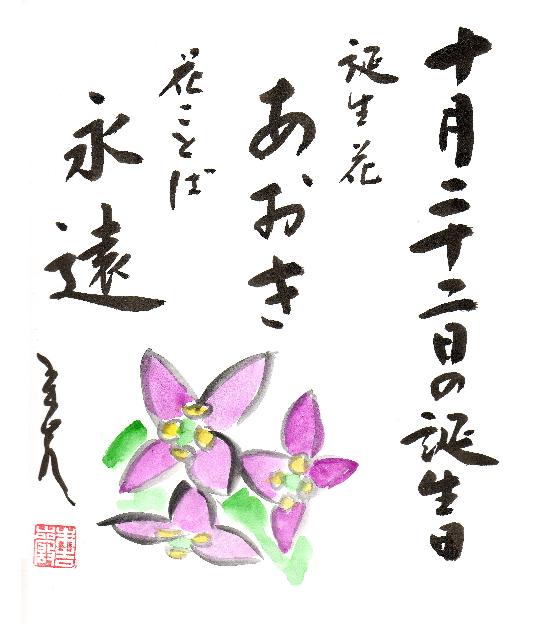 十月二十二日の誕生日
誕生花
あおき
花ことば
永遠